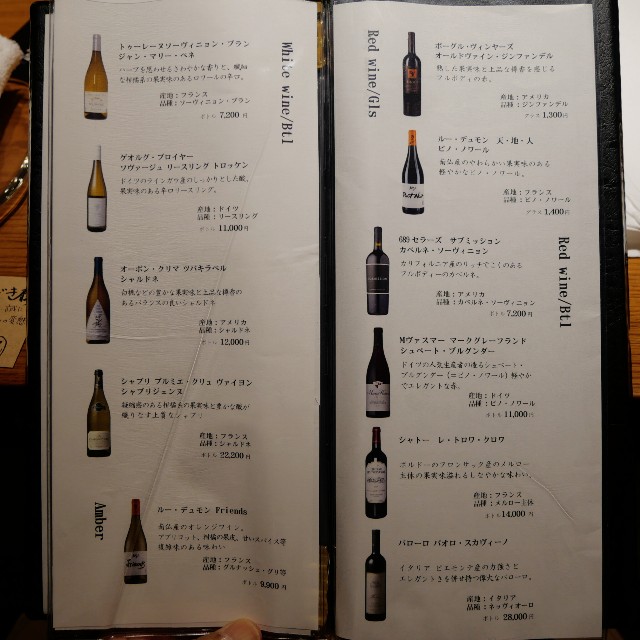 White wine/Btl
トゥーレーヌソーヴィニョン・ブラン
ジャン・マリー・ペネ
ハーブを思わせるさわやかな香りと、繊細
な柑橘系の果実味のあるロワールの辛口。
産地：フランス
品種：ソーヴィニョン・ブラン
ボトル 7,200円
ゲオルグ・ブロイヤー
ソヴァージュ リースリング トロッケン
ドイツのラインガウ産のしっかりとした酸、
果実味のある辛口リースリング。
産地：ドイツ
品種：リースリング
ボトル 11,000円
オーボン・クリマ ツバキラベル
シャルドネ
白桃などの豊かな果実味と上品な樽香の
あるバランスの良いシャルドネ
産地：アメリカ
品種：シャルドネ
ボトル 12,000円
シャブリ プルミエ・クリュ ヴァイヨン
シャプリジェンヌ
凝縮感のある柑橘系の果実味と豊かな酸が
織りなす上質なシャブリ
産地：フランス
品種：シャルドネ
ボトル 22,200円
Amber
ルー・デュモン Friends
南仏産のオレンジワイン。
アプリコット、柑橘の果皮、甘いスパイス等
複雑味のある味わい
産地：フランス
品種：グルナッシュ・グリ等
ボトル 9,900円
Red wine/Gls
ボーグル・ヴィンヤーズ
オールドヴァイン・ジンファンデル
熟した果実味と上品な樽香を感じる
フルボディの赤。
産地：アメリカ
品種：ジンファンデル
グラス 1,300円
ルー・デュモン 天・地・人
ピノ・ノワール
南仏産のやわらかい果実味のある
軽やかなピノ・ノワール。
産地：フランス
品種：ピノ・ノワール
グラス 1,400円
Red wine/Btl
689 セラーズ サブミッション
カベルネ・ソーヴィニョン
カリフォルニア産のリッチでこくのある
フルボディーのカベルネ。
産地：アメリカ
品種：カベルネ・ソーヴィニョン
ボトル 7,200円
Mヴァスマー マークグレーフランド
シュペート・ブルグンダー
ドイツの人気生産者の造るシュペート・
ブルグンダー（＝ピノ・ノワール）軽やか
でエレガントな赤。
産地：ドイツ
品種：ピノ・ノワール
ボトル 11,000円
シャトー レ・トロワ・クロワ
ボルドーのフロンサック産のメルロー
主体の果実味溢れるしなやかな味わい。
産地：フランス
品種：メルロー主体
ボトル 14,000円
バローロ パオロ・スカヴィーノ
イタリア ピエモンテ産の力強さと
エレガントさを併せ持つ偉大なバローロ。
産地：イタリア
品種：ネッヴィオーロ
ボトル 28,000円